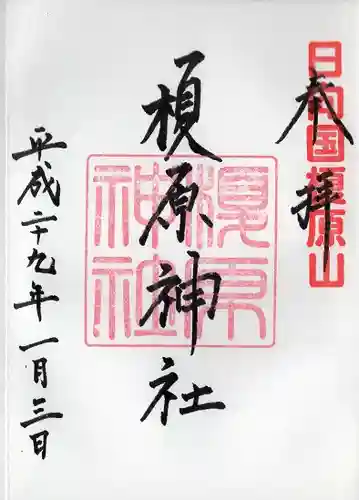 奉拝
日向国榎原山
榎原神社
榎原神社
平成二十九年一月三日